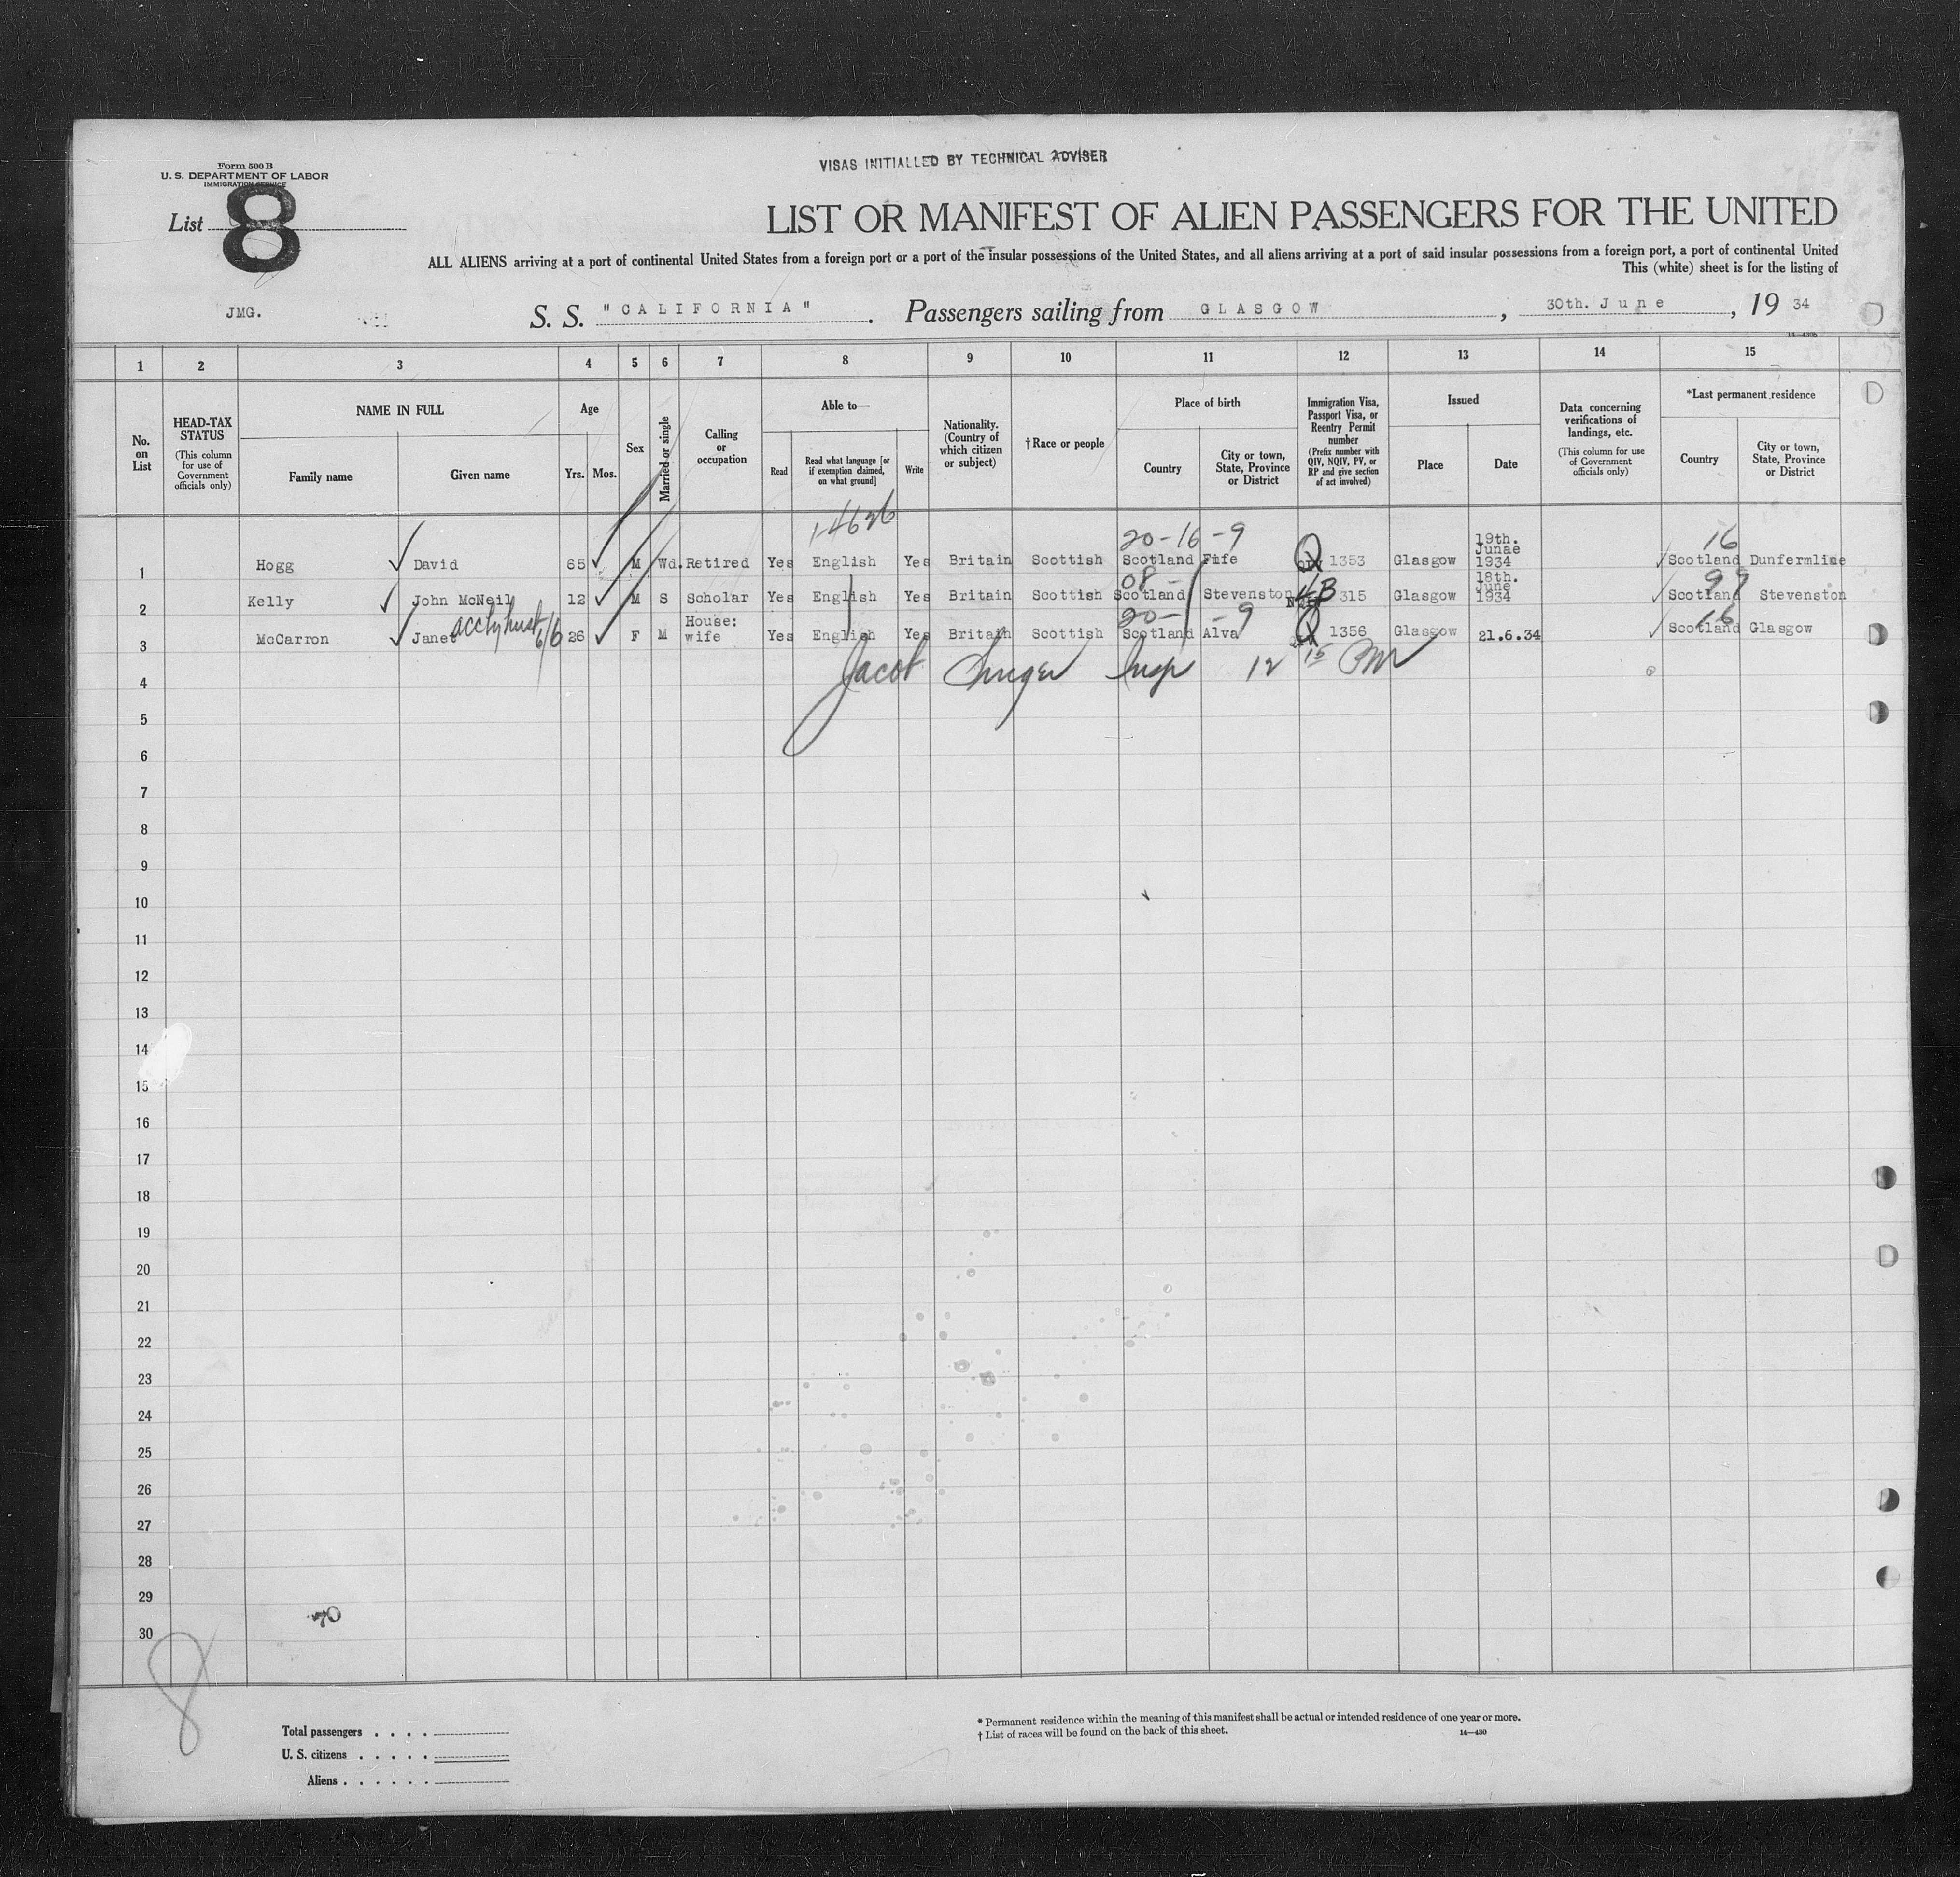 Form 500 B
U. S. DEPARTMENT OF LABOR
IMMIGRATION SERVICE
VISAS INITIALLED BY TECHNICAL ADVISER
List 8
LIST OR MANIFEST OF ALIEN PASSENGERS FOR THE UNITED
ALL ALIENS arriving at a port of continental United States from a foreign port or a port of the insular possessions of the United States, and all aliens arriving at a port of said insular possessions from a foreign port, a port of continental United
This (white) sheet is for the listing of
JMG.
S. S. "CALIFORNIA" . Passengers sailing from GLASGOW , 30th. June , 19 34
1 2 3 4 5 6 7 8 9 10 11 12 13 14 15
No. on List
HEAD-TAX STATUS (This column for use of Government officials only)
NAME IN FULL
Family name Given name
Age
Yrs. Mos.
Sex
Married or single
Calling or occupation
Able to—
Read
Read what language [or if exemption claimed, on what ground]
Write
Nationality. (Country of which citizen or subject)
† Race or people
Place of birth
Country
City or town, State, Province or District
Immigration Visa, Passport Visa, or Reentry Permit number (Prefix number with QIV, NQIV, PV, or RP and give section of act involved)
Issued
Place Date
Data concerning verifications of landings, etc. (This column for use of Government officials only)
*Last permanent residence
Country
City or town, State, Province or District
20-16-9 16
1 Hogg David 65 M Wd. Retired Yes English Yes Britain Scottish Scotland Fife Q 1353 Glasgow 19th. Junae 1934 Scotland Dunfermline
08- 99
2 Kelly John McNeil 12 M S Scholar Yes English Yes Britain Scottish Scotland Stevenston 315 Glasgow 18th. June 1934 Scotland Stevenston
20- -9 16
3 McCarron Janet 26 F M House: wife Yes English Yes Britain Scottish Scotland Alva Q 1356 Glasgow 21.6.34 Scotland Glasgow
4 Jacob Insp 12 15 PM
5
6
7
8
9
10
11
12
13
14
15
16
17
18
19
20
21
22
23
24
25
26
27
28
29
30
70
8
Total passengers . . . .
U. S. citizens . . . . .
Aliens . . . . . .
* Permanent residence within the meaning of this manifest shall be actual or intended residence of one year or more.
† List of races will be found on the back of this sheet. 14—430